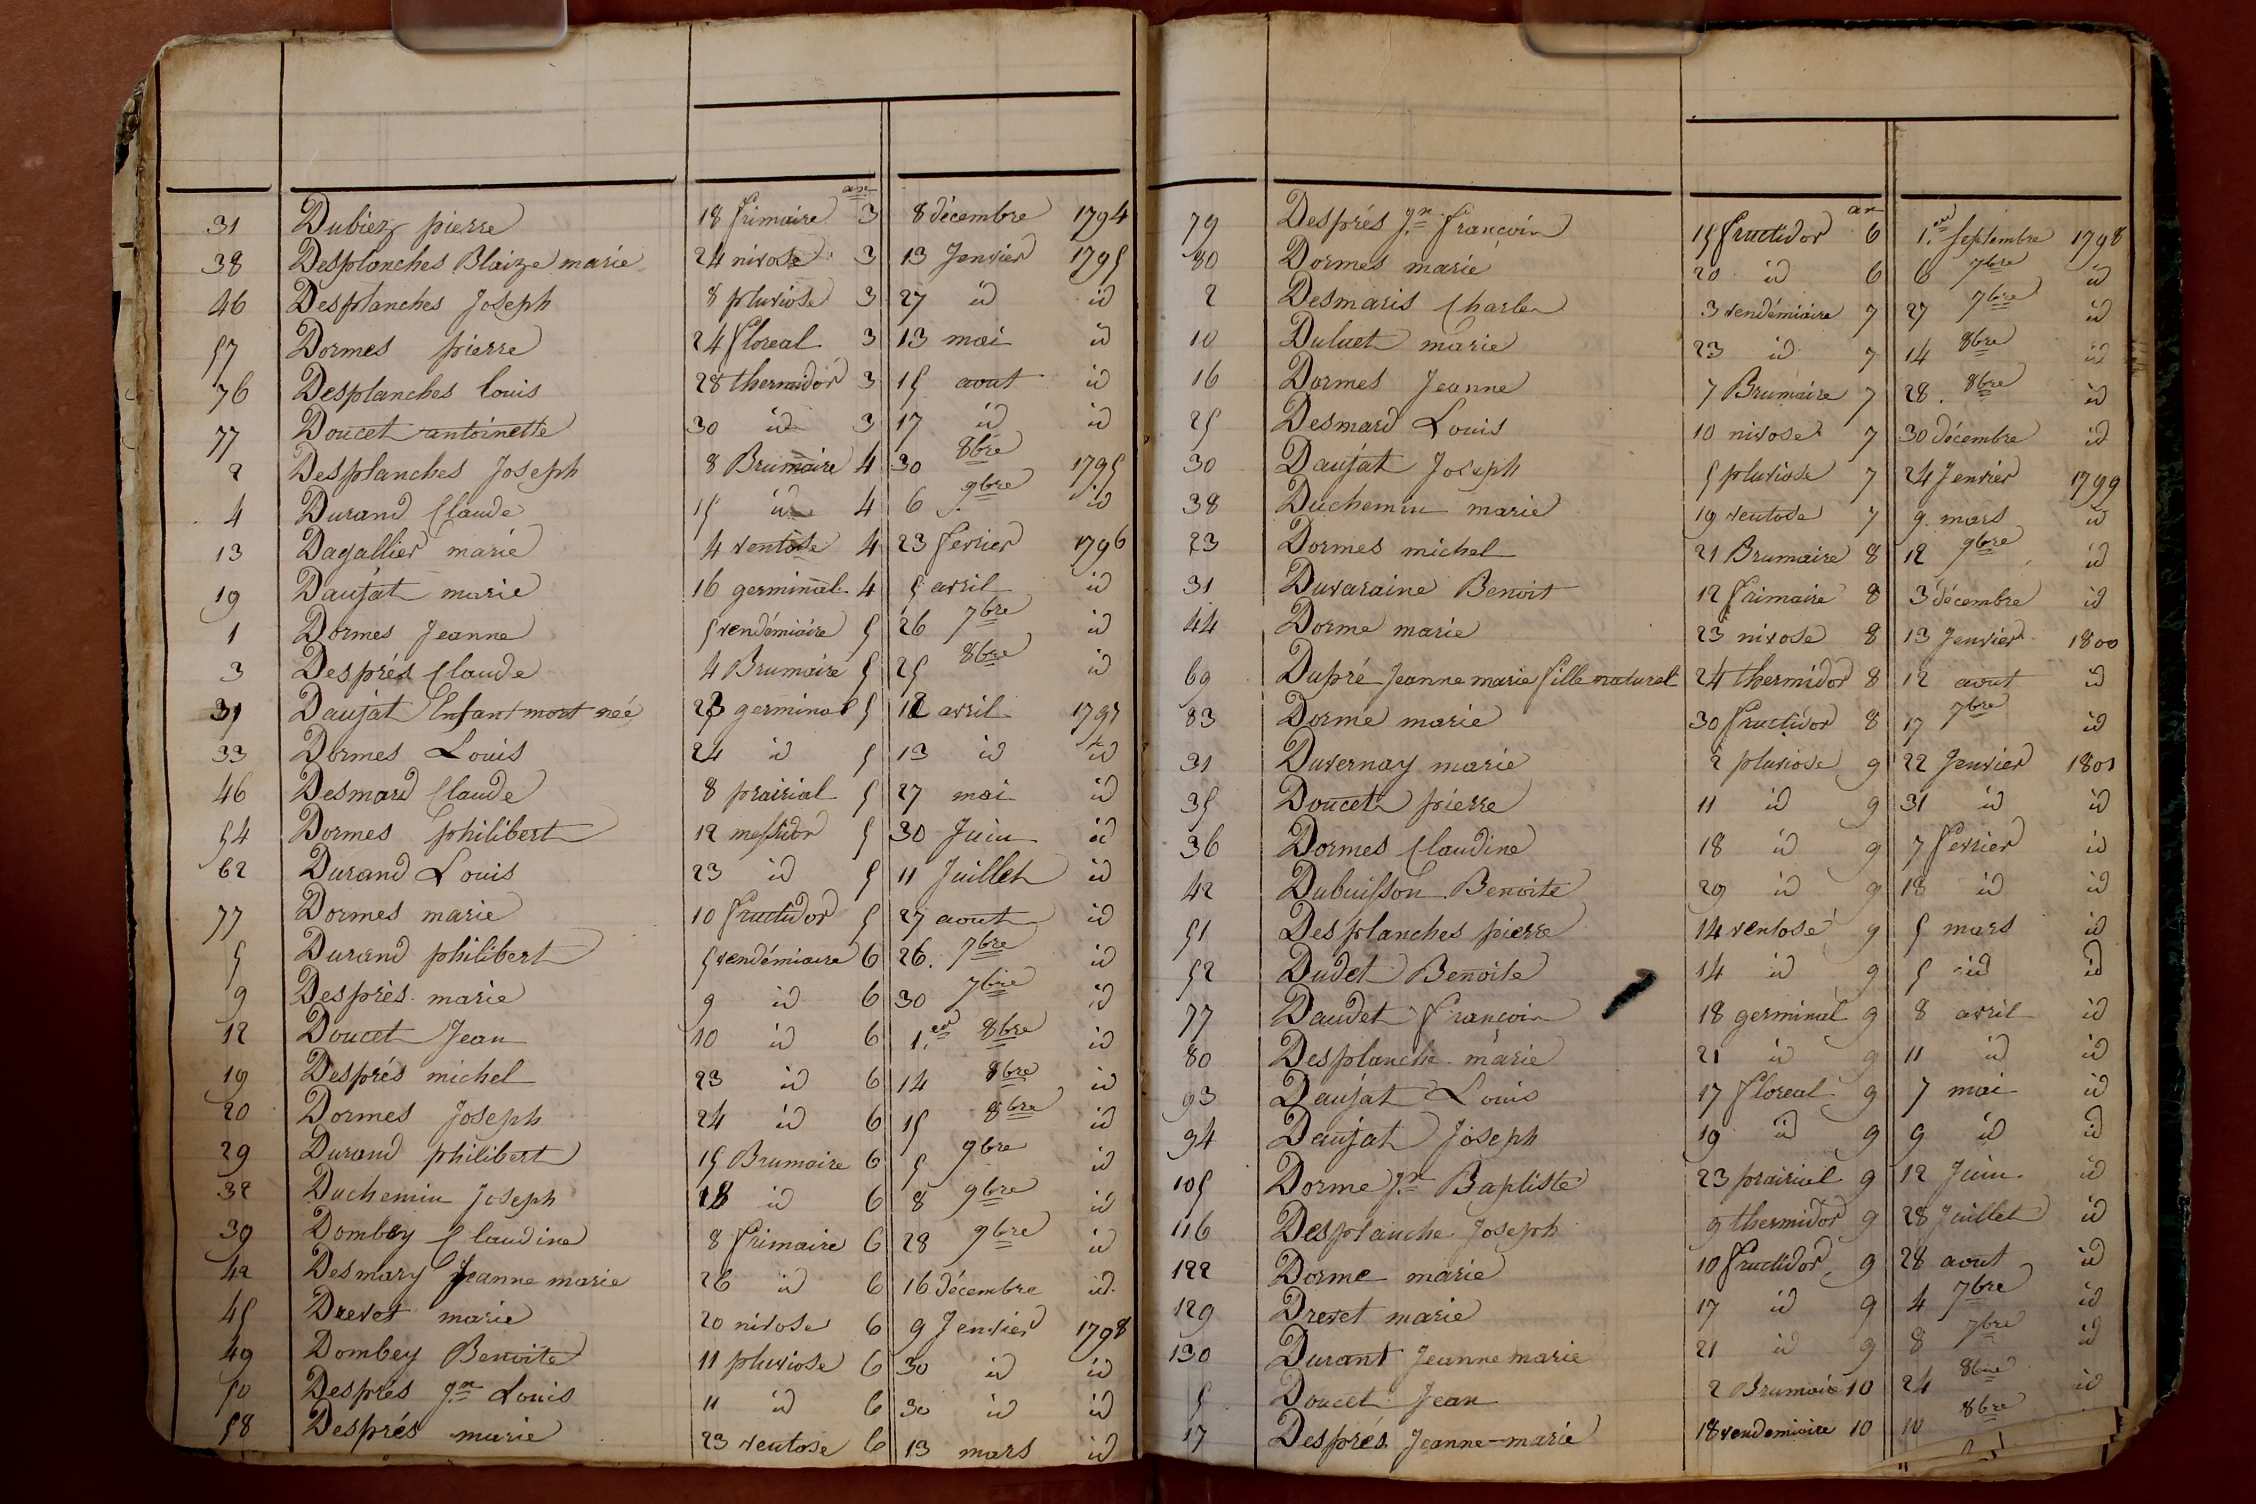 an
31 Dubiez pierre 18 frimaire 3 8 décembre 1794
38 Desplanches Blaize marie 24 nivose 3 13 Jenvier 1795
46 Desplanches Joseph 8 pluviose 3 27 id id
57 Dormes pierre 24 floreal 3 13 mai id
76 Desplanches Louis 28 thermidor 3 15 aout id
77 Doucet antoinette 30 id 3 17 id id
2 Desplanches Joseph 8 Brumaire 4 30 8bre 1795
4 Durand Claude 15 id 4 6 9bre id
13 Dagallier marie 4 ventose 4 23 fevrier 1796
19 Daujat marie 16 germinal 4 5 avril id
1 Dormes Jeanne 5 vendémiaire 5 26 7bre id
3 Després Claude 4 Brumaire 5 25 8bre id
31 Daujat Enfant mort neé 23 germinal 5 12 avril 1797
33 Dormes Louis 24 id 5 13 id id
46 Desmard Claude 8 prairial 5 27 mai id
54 Dormes philibert 12 messidor 5 30 Juin id
62 Durand Louis 23 id 5 11 Juillet id
77 Dormes marie 10 fructidor 5 27 aout id
5 Durand philibert 5 vendémiaire 6 26. 7bre id
9 Desprès marie 9 id 6 30 7bre id
12 Doucet Jean 10 id 6 1.er 8bre id
19 Després michel 23 id 6 14 8bre id
20 Dormes Joseph 24 id 6 15 8bre id
29 Durand philibert 15 Brumaire 6 5 9bre id
32 Duchemin Joseph 18 id 6 8 9bre id
39 Dombey Claudine 8 frimaire 6 28 9bre id
42 Desmary Jeanne marie 26 id 6 16 décembre id
45 Drevet marie 20 nivose 6 9 Jenvier 1798
49 Dombey Benoite 11 pluviose 6 30 id id
50 Desprès Jn Louis 11 id 6 30 id id
58 Després marie 23 ventose 6 13 mars id
an
79 Després Jn françois 15 fructidor 6 1.er septembre 1798
80 Dormes marie 20 id 6 6 7bre id
2 Desmaris Charles 3 vendémiaire 7 27 7bre id
10 Duluet marie 23 id 7 14 8bre id
16 Dormes Jeanne 7 Brumaire 7 28. 8bre id
25 Desmard Louis 10 nivose 7 30 décembre id
30 Daujat Joseph 5 pluviose 7 24 Jenvier 1799
38 Duchemin marie 19 ventose 7 9 mars id
23 Dormes michel 21 Brumaire 8 12 9bre id
31 Duvaraine Benoit 12 frimaire 8 3 décembre id
44 Dorme marie 23 nivose 8 13 Jenvier 1800
69 Dupré Jeanne marie fille naturel 24 thermidor 8 12 aout id
83 Dorme marie 30 fructidor 8 17 7bre id
31 Duvernay marie 2 pluviose 9 22 Jenvier 1801
35 Doucet pierre 11 id 9 31 id id
36 Dormes Claudine 18 id 9 7 fevrier id
42 Dubuisson Benoite 29 id 9 18 id id
51 Desplanches pierre 14 ventose 9 5 mars id
52 Dudet Benoite 14 id 9 5 id id
77 Daudet françois 18 germinal 9 8 avril id
80 Desplanche marie 21 id 9 11 id id
93 Daujat Louis 17 floreal 9 7 mai id
94 Daujat Joseph 19 id 9 9 id id
105 Dorme Jn Baptiste 23 prairial 9 12 Juin id
116 Desplanche Joseph 9 thermidor 9 28 Juillet id
122 Dorme marie 10 fructidor 9 28 aout id
129 Drevet marie 17 id 9 4 7bre id
130 Durant Jeanne marie 21 id 9 8 7bre id
5 Doucet Jean 2 Brumaire 10 24 8bre id
17 Desprès Jeanne-marie 18 vendemiaire 10 10 8bre